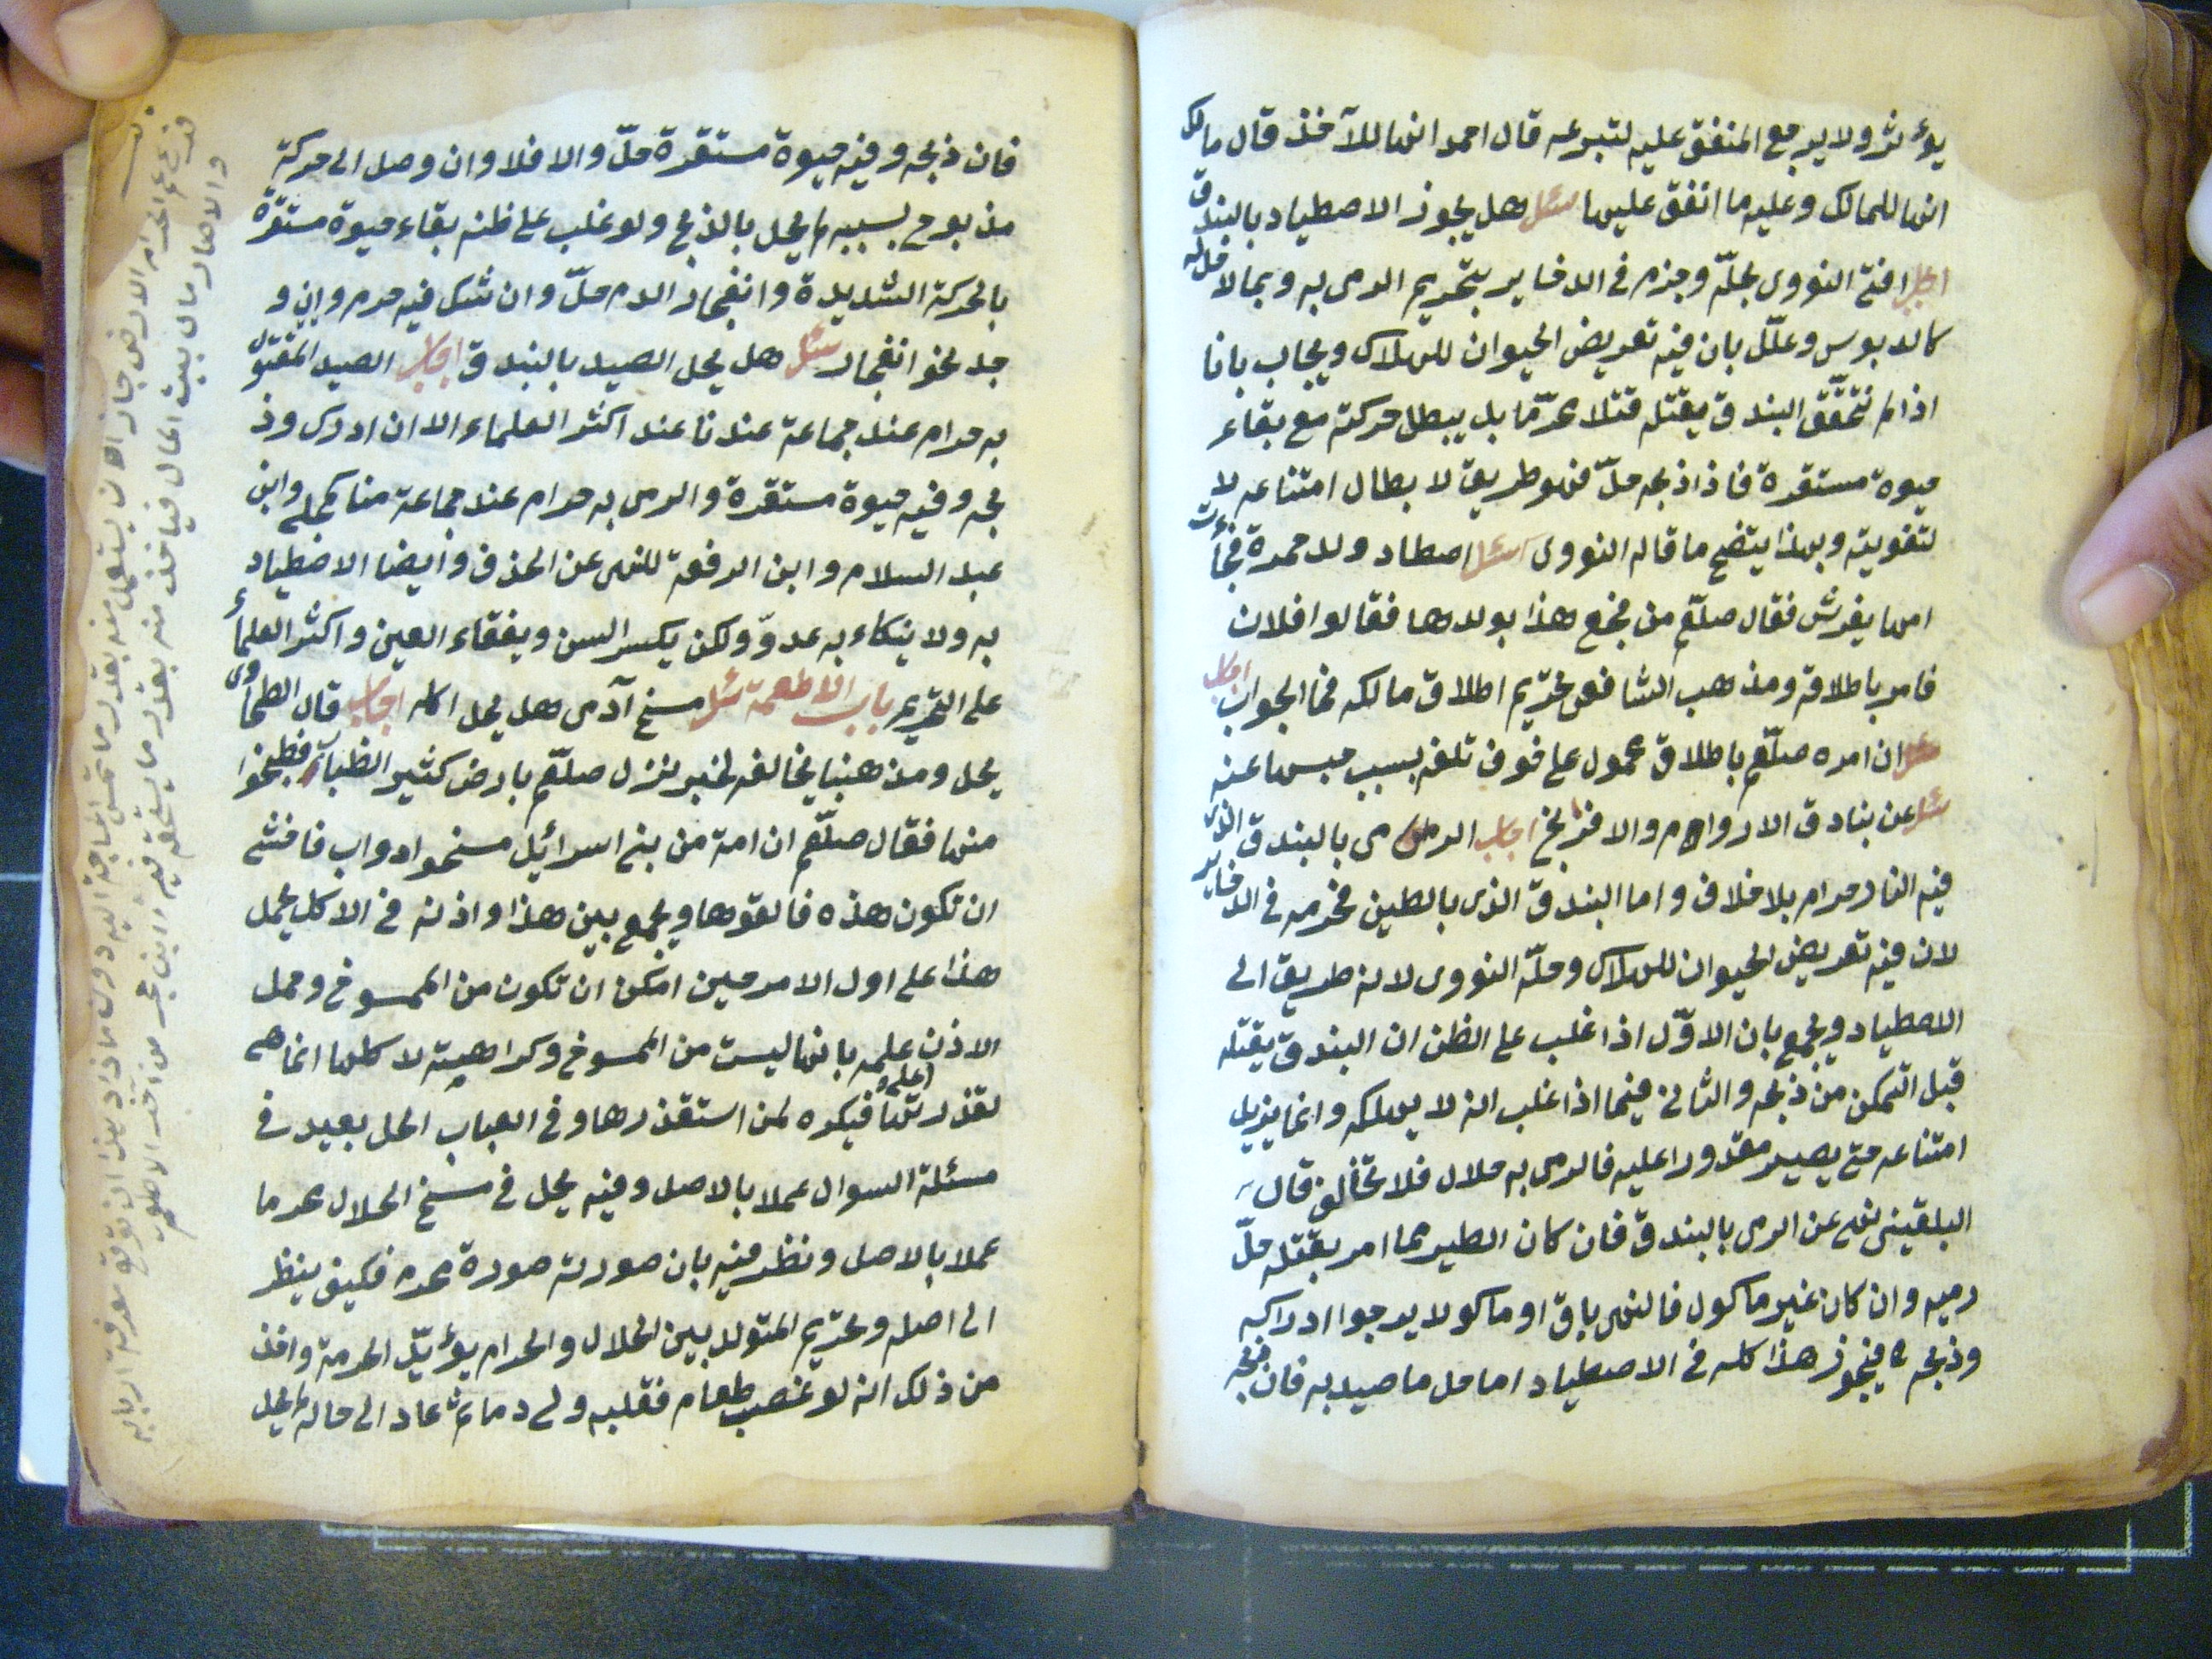 يؤثر ولا يرجع المنفق عليه لتبرعه قال احمد انها للآخذ قال مالك
انها للمالك وعليه ما انفق عليها سئل هل يجوز الاصطياد بالبندق
اجاب افتى النووى بحلّه وجزم فى الدخاير بتحريم الرمى به وبمالا
كالدبوس وعلّل بان فيه تعريض الحيوان للهلاك ويجاب بانا
اذا لم نتحقّق البندق يقتله قتلا محرّما بل يبطل حركته مع بقاء
حيوة مستقرة فاذا ذبحه حلّ فهو طريق لابطال امتناعه لا
لتفويته وبهذا يتضح ما قاله النووى سئل اصطاد ولد حمرة فجأت
امها يفرش فقال صلعم من فجع هذا بولدها فقالوا فلان
فامر باطلاقه ومذهب الشافعى تحريم اطلاق مالكه فما الجواب اجاب
ان امره صلّعم باطلاق محمول على خوف تلفه بسبب حبسها عنه
سئل عن بنادق الاروام والافرنج اجاب الرمى بالبندق الذى
فيه النار حرام بلا خلاف واما البندق الذى بالطين فحرمه فى الدخاير
لان فيه تعريض الحيوان للهلاك وحلّه النووى لانه طريق الى
الاصطياد ويجمع بان الاوّل اذا غلب على الظن ان البندق يقتله
قبل التمكن من ذبحه والثانى فيما اذا غلب انه لا يهلكه وانما يزيل
امتناعه حتى يصير مقدورا عليه فالرمى به حلال فلا تخالف قال
البلقينى نهى عن الرمى بالبندق فان كان الطير مما امر بقتله حلّ
رميه وان كان غير ماكول فالنهى باق او ماكولا يرجوا ادراكه
وذبحه فيجوز هذا كله فى الاصطياد اما حل ما صيد به فان
فان ذبحه وفيه حيوة مستقرة حلّ والا فلا وان وصل الى حركة
مذبوح بسببه لم يحل بالذبح ولو غلب على ظنه بقاء حيوة مستقرة
بالحركة الشديدة وانفجار الدم حلّ وان شك فيه حرم وان و
جد نحو انفجار سئل هل يحل الصيد بالبندق اجاب الصيد المقتول
به حرام عند جماعة عندنا عند اكثر العلماء الا ان ادرك وذ
بحه وفيه حيوة مستقرة والرمى به حرام عند جماعة منا كمجلى وابن
عبد السلام وابن الرفعة للنهى عن الخذف وايضا الاصطياد
به ولا ينكاء به عدوّ ولكن يكسر السن ويفقاء العين واكثر العلماء
على التحريم باب الاطعمة سئل مسخ آدمى هل يحل اكله اجاب قال الطحاوى
يحل ومذهبنا يخالفه لخبر نزل صلّعم بارض كثير الظباء فطبخوا
منها فقال صلّعم ان امة من بنى اسرائيل مسخوا دواب فاخشى
ان تكون هذه فالقوها ويجمع بين هذا واذنه فى الاكل بحمل
هذا على اول الامر حين امكن ان تكون من الممسوخ وحمل
الاذن علمه بانها ليست من الممسوخ وكراهية لاكلها انما هى
لقذرتها فيكره لمن استقذرها وفى العباب الحل بعيد فى
مسئلة السوال عملا بالاصل وفيه يحل فى مسخ الحلال محرما
عملا بالاصل ونظر فيه بان صورته صورة محرم فكيف ينظر
الى اصله وتحريم المتولد بين الحلال والحرام يؤيّد الحرمة واخذ
من ذلك انه لو غصب طعام فقلبه ولى دما ثم عاد الى حاله لم يحل